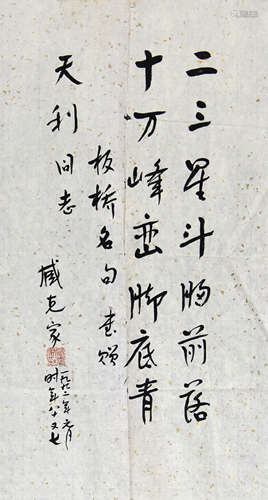 二三星斗胸前落
十万峰峦脚底青
板桥名句书赠
天利同志
臧克家
一九九二年元月
时年八又七